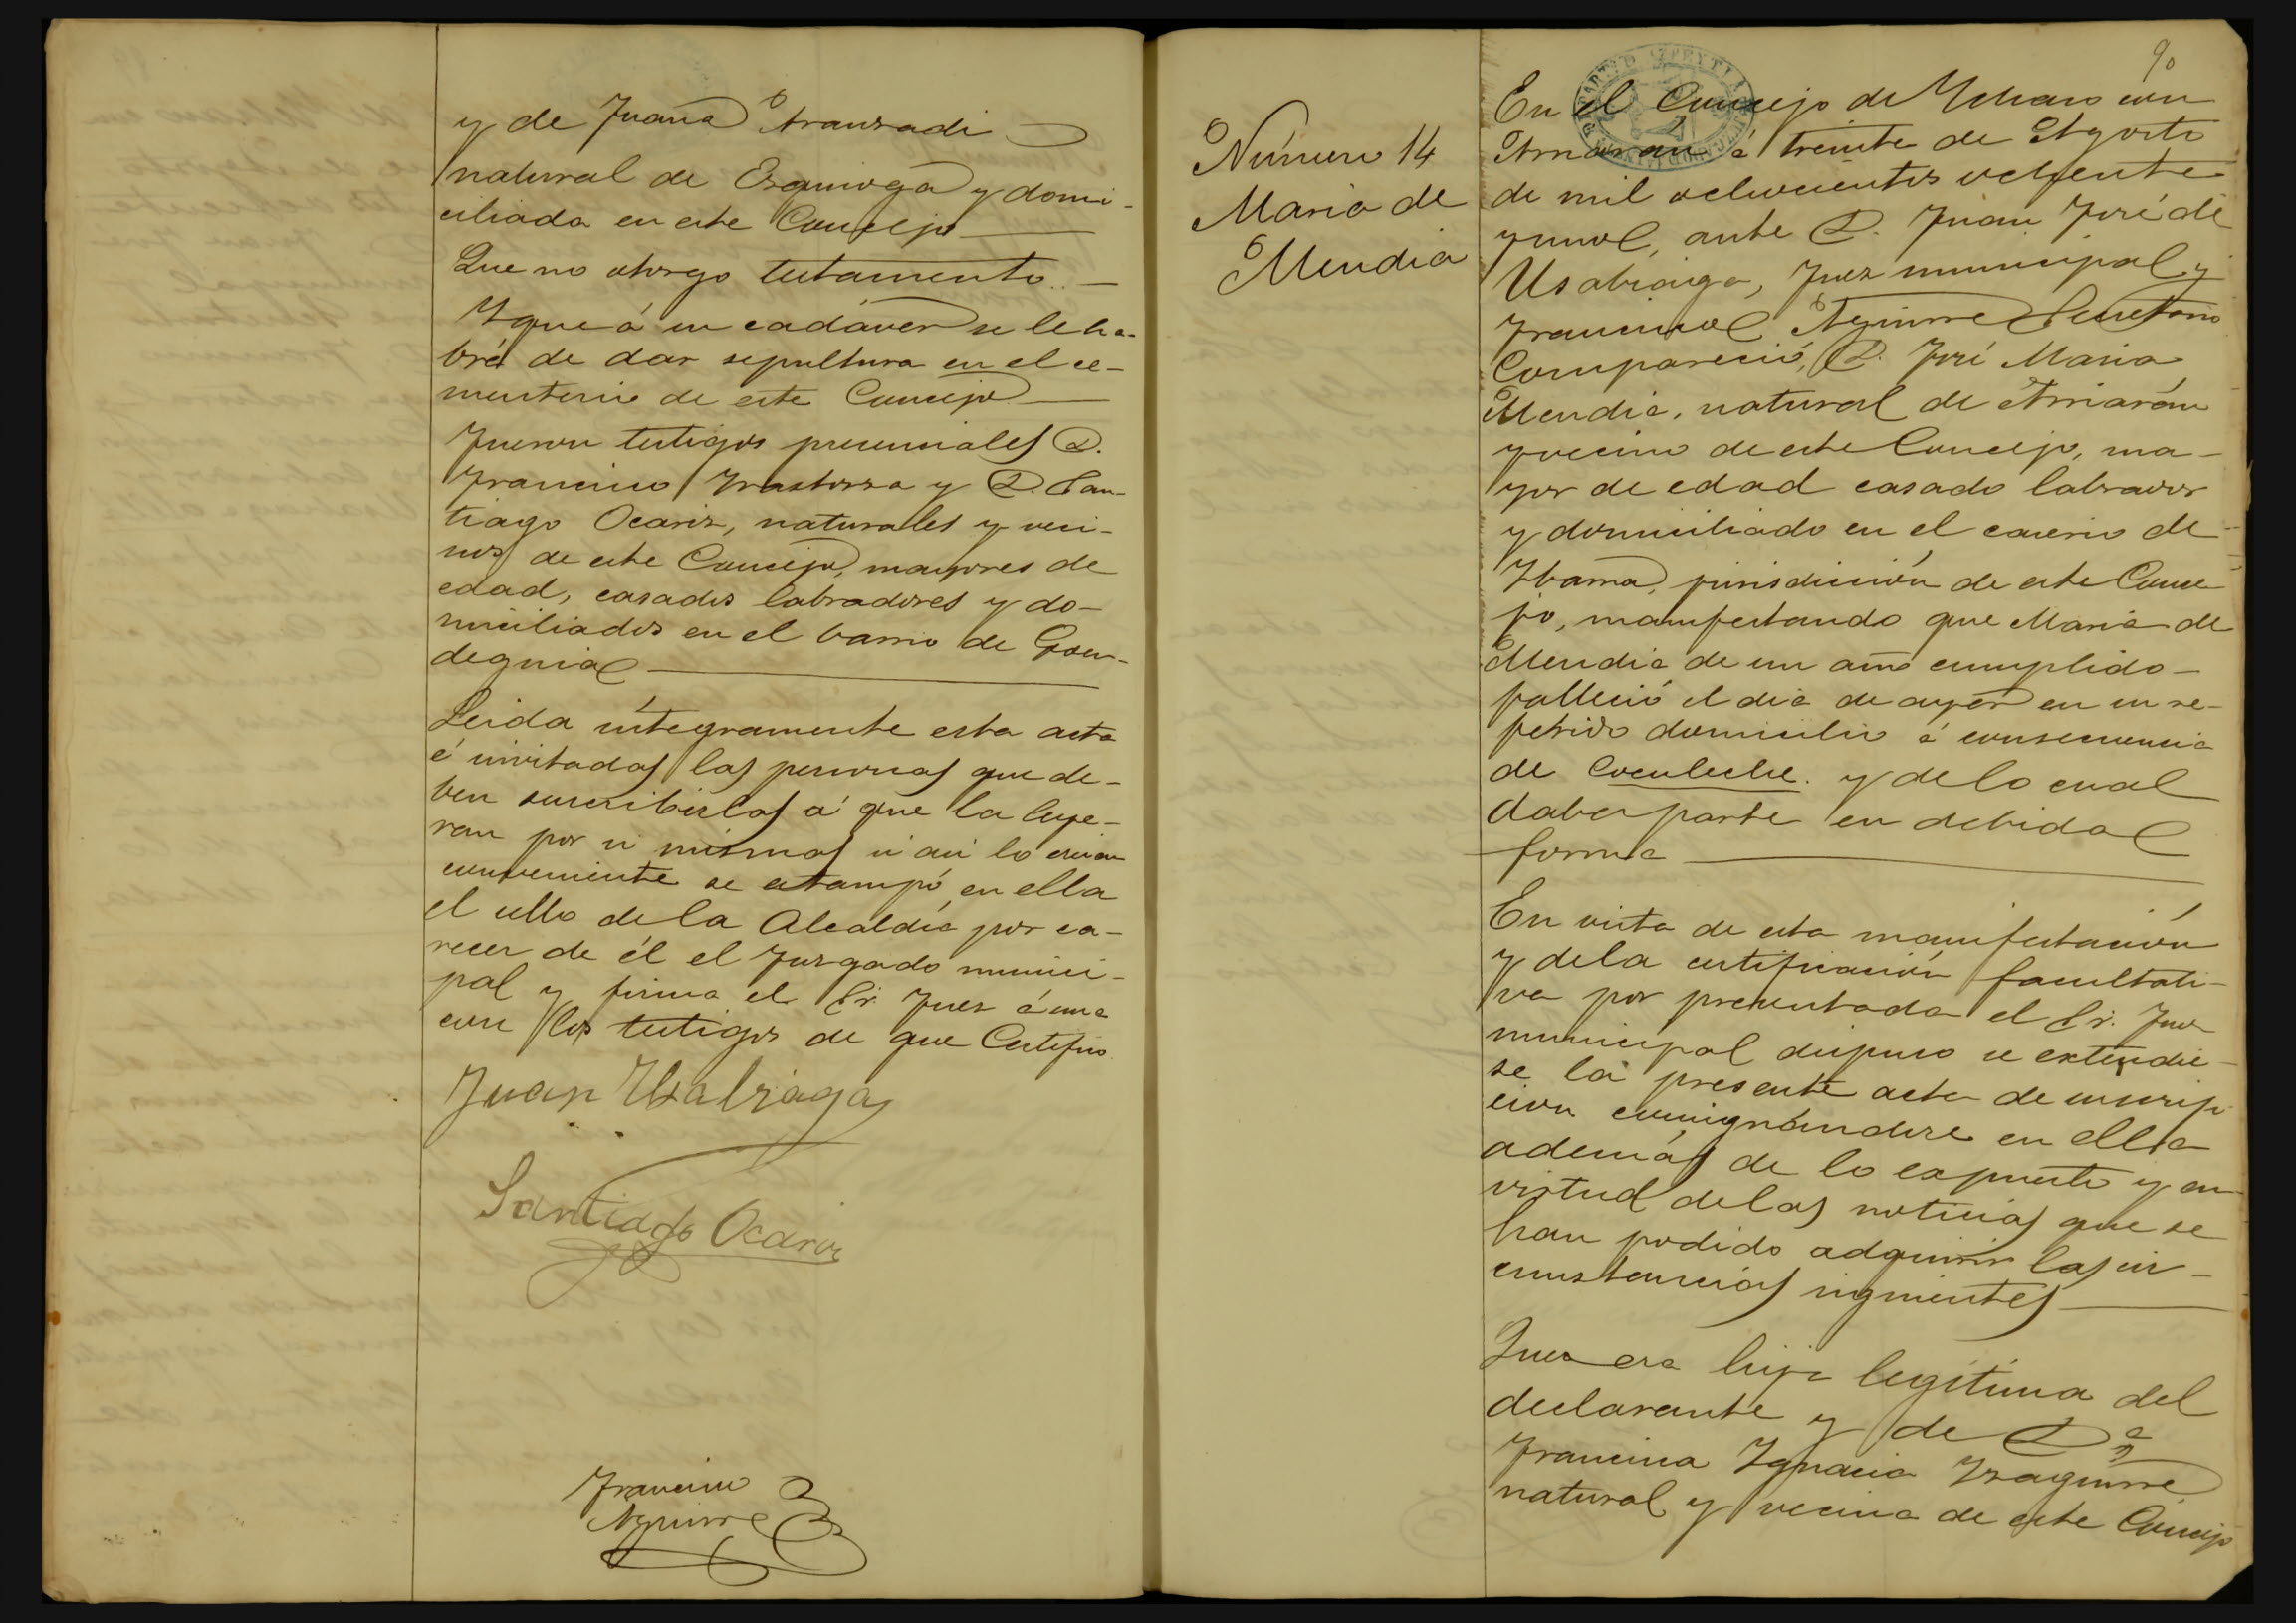 y de Juana Aranzadi
natural de Ezquioga y domi-
ciliada en este Concejo
Que no otorgo testamento.
Y que á su cadáver se le ha-
brá de dar sepultura en el ce-
menterio de este Concejo
Fueron testigos presenciales D.
Francisco Irastorza y D. San-
tiago Ocariz, naturales y veci-
nos de este Concejo, mayores de
edad, casados labradores y do-
miciliados en el barrio de
Leida íntegramente esta acta
é invitadas las personas que de-
ben suscribirlas á que la leye-
ran por si mismas si asi lo creian
conveniente se estampó en ella
el sello de la Alcaldía por ca-
recer de él el Juzgado munici-
pal y firma el Sr. Juez á una
con los testigos de que Certifico
Juan Usabiaga
Santiago Ocariz
Francisco
Aguirre
90
Número 14
Maria de
Mendia
En el Concejo de Ichaso con
Arriaran á treinta de Agosto
de mil ochocientos ochenta
y uno, ante D. Juan José de
Usabiaga, Juez municipal y
Francisco Aguirre Secretario
Compareció, D. José Maria
Mendia, natural de Arriarán
y vecino de este Concejo, ma-
yor de edad casado labrador
y domiciliado en el caserio de
Ibarra, jurisdicción de este Conce
jo, manifestando que Maria de
Mendia de un año cumplido
falleció el dia de ayer en su re-
ferido domicilio á consecuencia
de y de lo cual
daba parte en debida
forma
En vista de esta manifestación
y de la certificación facultati-
va por presentada el Sr. Juez
municipal dispuso se extendie-
se la presente acta de inscrip
cion consignándose en ella
además de lo expuesto y en
virtud de las noticias que se
han podido adquirir las cir-
cunstancias siguientes
Que era hija legítima del
declarante y de Dª
Francisca Ignacia Izaguirre
natural y vecina de este Concejo